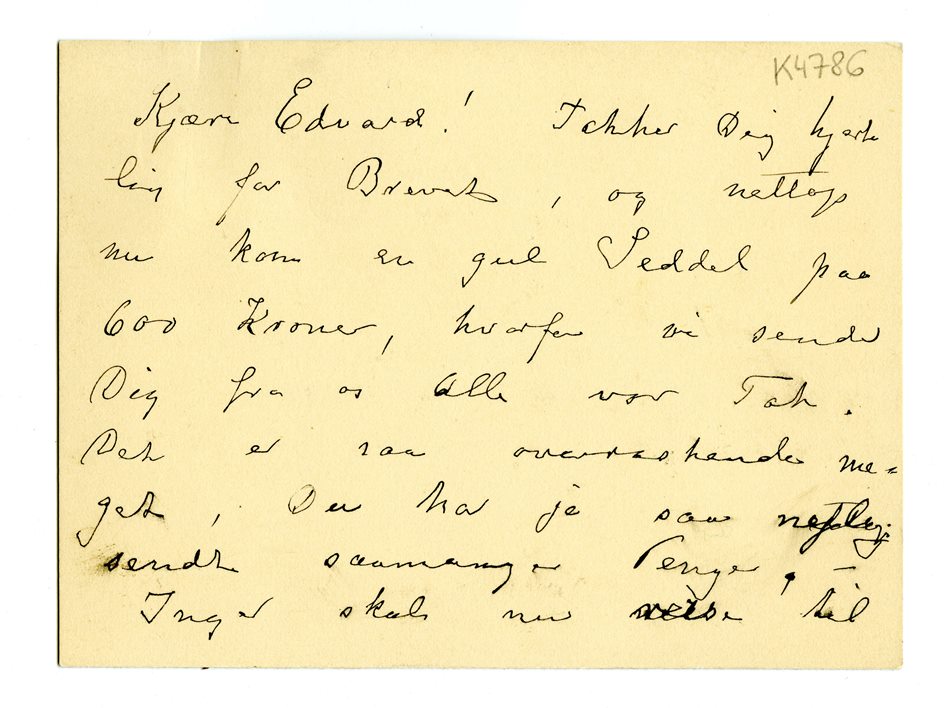 K4786
Kjære Edvard! Takker Dig hjerte
lig for Brevet, og nettop
nu kom en gul Seddel paa
600 Kroner, hvorfor vi sender
Dig fra os Alle vor Tak.
Det er saa overraskende me=
get, Du har jo saa
sendt saamange Penge, –
Inger skal nu reise til